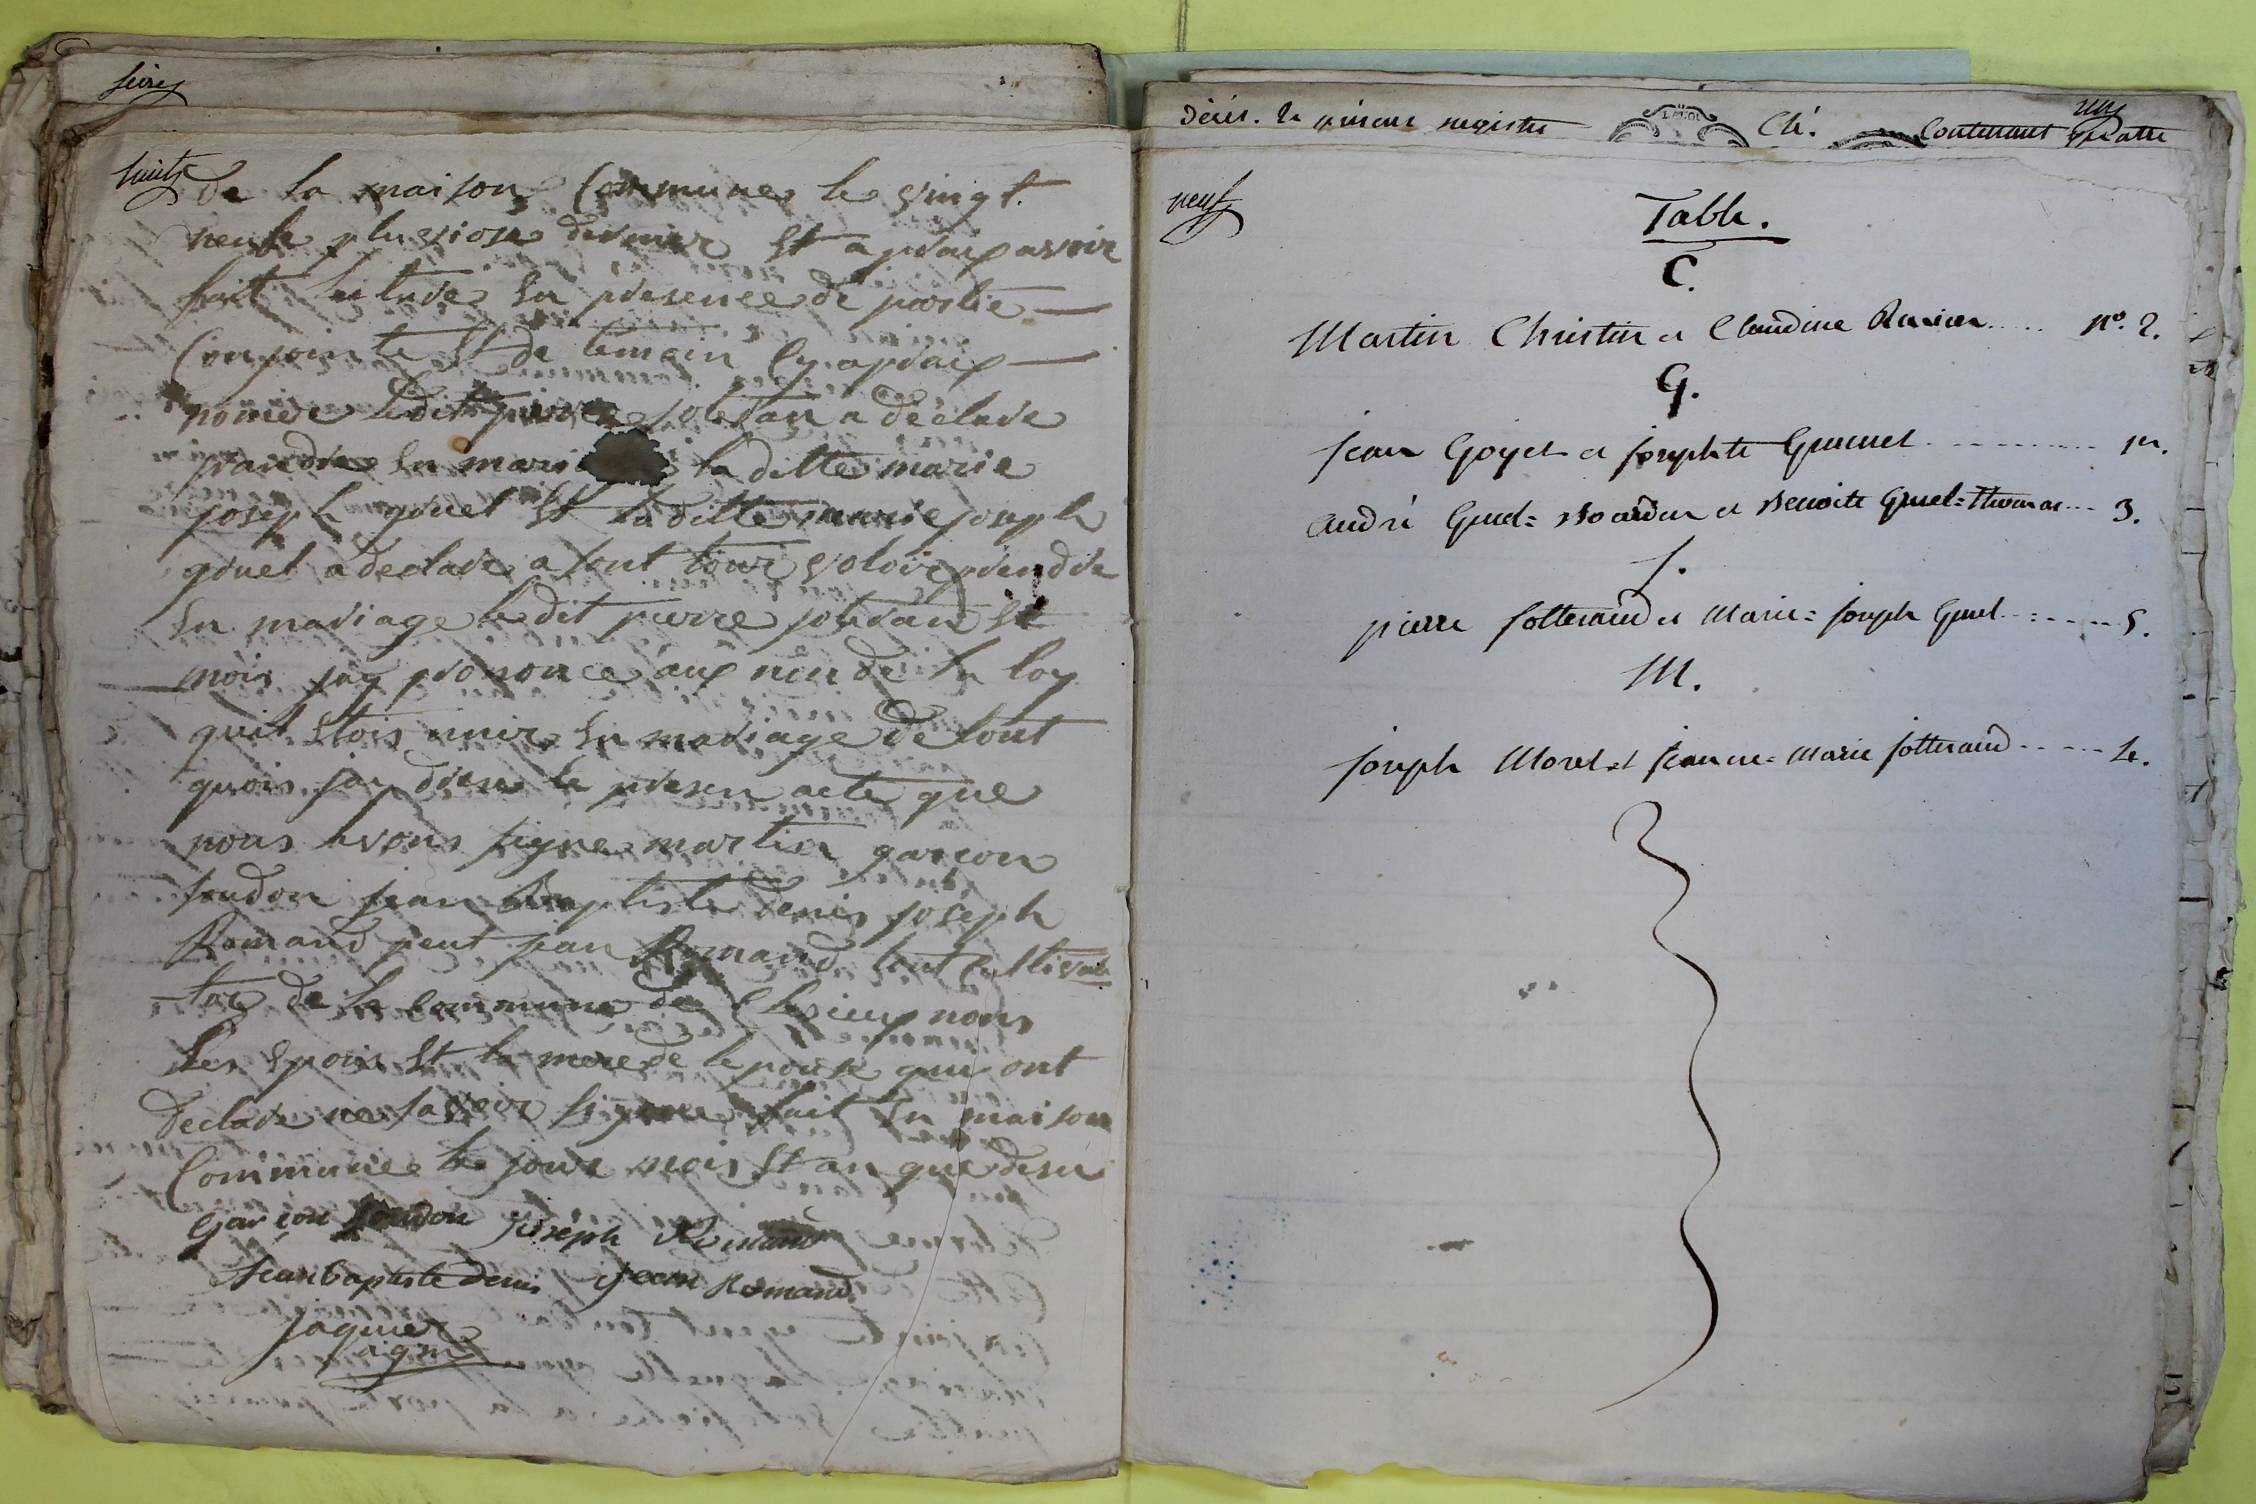 huit
de la maison Commune le vingt
neufe pluviose dernier Et apraix avoir
fait lecture En presence de partie
Conjointe Et de temoin Cy apraix
nomere ledit pierre joteran a déclare
prandre En mari la ditte marie
joseph gruel Et la ditte marie joseph
gruel a declare a sont tour voloir prendre
En mariage le dit pierre joteran Et
mois jay prononce aux non de la loy
quil Etois unir En mariage de tout
quois jay dresse le presen acte que
nous avons signe martin garcon
joudon jean Baptiste denis joseph
Romand petit jean Romand tout Cultiva
teur de la commune de nons
les Epois Et la mere de lepouse qui ont
declare ne savoir signere fait En maison
Commune le jour mois Et an que desu
Garçon joudon joséph Romand
Jean baptiste denis jean Romand
jaquier
agm
décés. le présent registre Clé. Contenant
quatre
neuf
Table.
C.
Martin Christin et Claudine Ravier..... N°. 2.
G.
Jean Goyet et Josephte Gruuet ........... 1er.
André Gruel= et Benoite Gruel=Thomas... 3.
J.
pierre Jotterand et Marie=Joseph Gruel........ 5.
M.
Joseph Morel et Jeanne=Marie Jotterand...... 4.